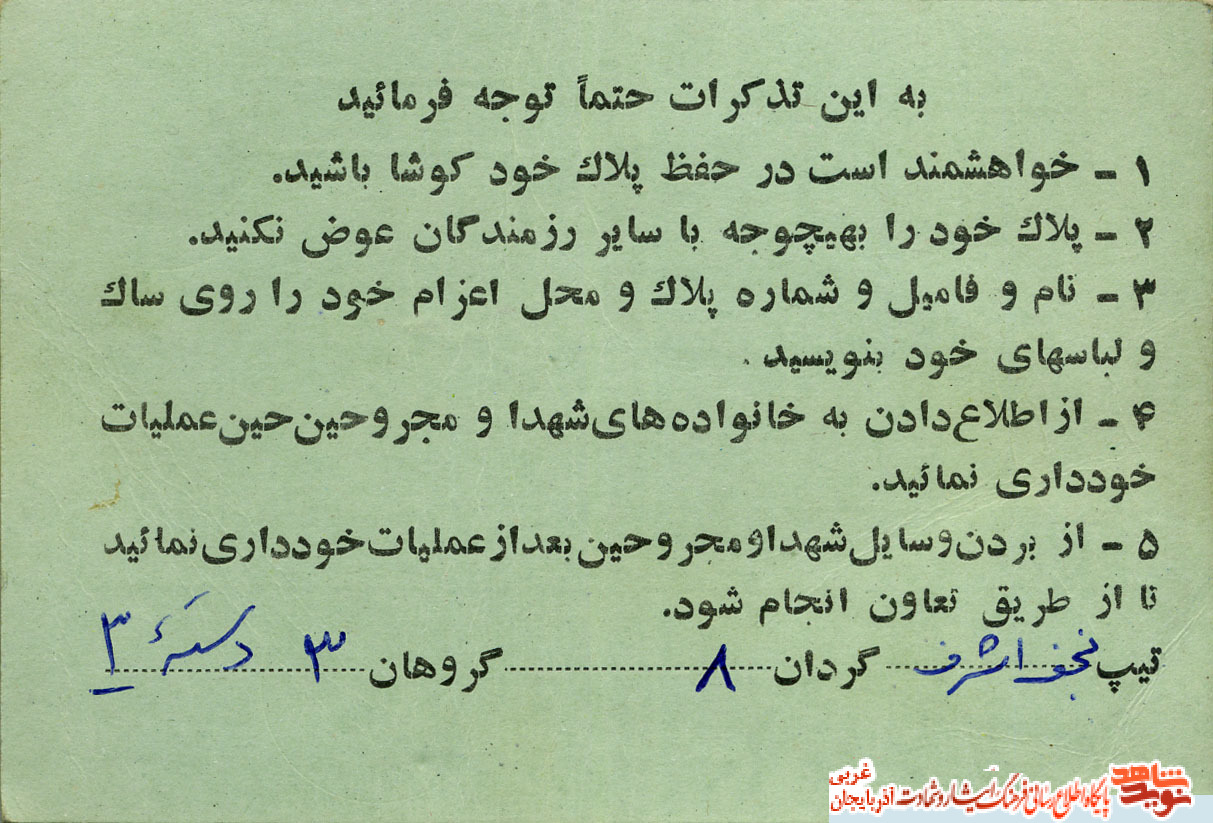 به این تذکرات حتماً توجه فرمائید
۱ - خواهشمند است در حفظ پلاك خود کوشا باشید.
۲ - پلاك خود را بهیچوجه با سایر رزمندگان عوض نکنید.
۳ - نام و فامیل و شماره پلاك و محل اعزام خود را روی ساك
و لباسهای خود بنویسید .
۴ - از اطلاع دادن به خانواده های شهدا و مجروحین حین عملیات
خودداری نمائید.
۵ - از بردن وسایل شهدا و مجروحین بعد از عملیات خودداری نمائید
تا از طریق تعاون انجام شود.
تیپ نجف اشرف گردان ۸ گروهان ۳ دستهٔ ۳
نوید شاهد پایگاه اطلاع رسانی فرهنگ ایثار و شهادت آذربایجان غربی